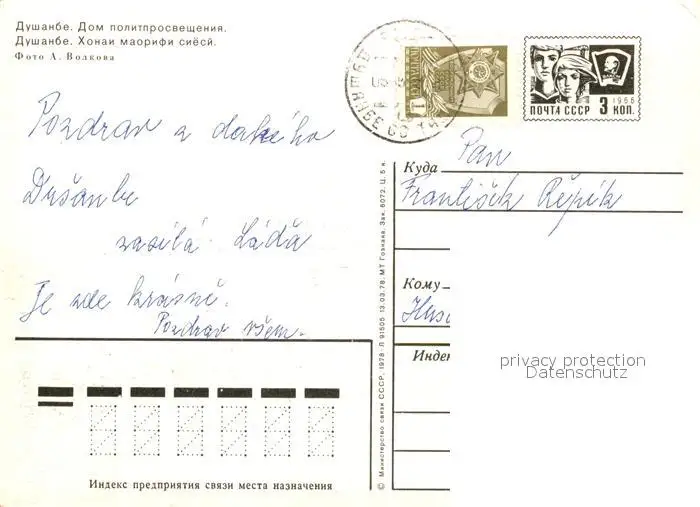 Душанбе. Дом политпросвещения.
Душанбе. Хонаи маорифи сиёсӣ.
Фото А. Волкова
1
1966
ПОЧТА СССР 3 КОП.
Pozdrav z dalekého
Dušanbe
zasílá Láďa
Je zde krásně.
Pozdrav všem.
© Министерство связи СССР, 1978. Л 91505 13.03.78. МТ Гознака. Зак. 6072. Ц. 5 к.
Куда
Pan
František Řepík
Кому
Huso
Индек
privacy protection
Datenschutz
Индекс предприятия связи места назначения